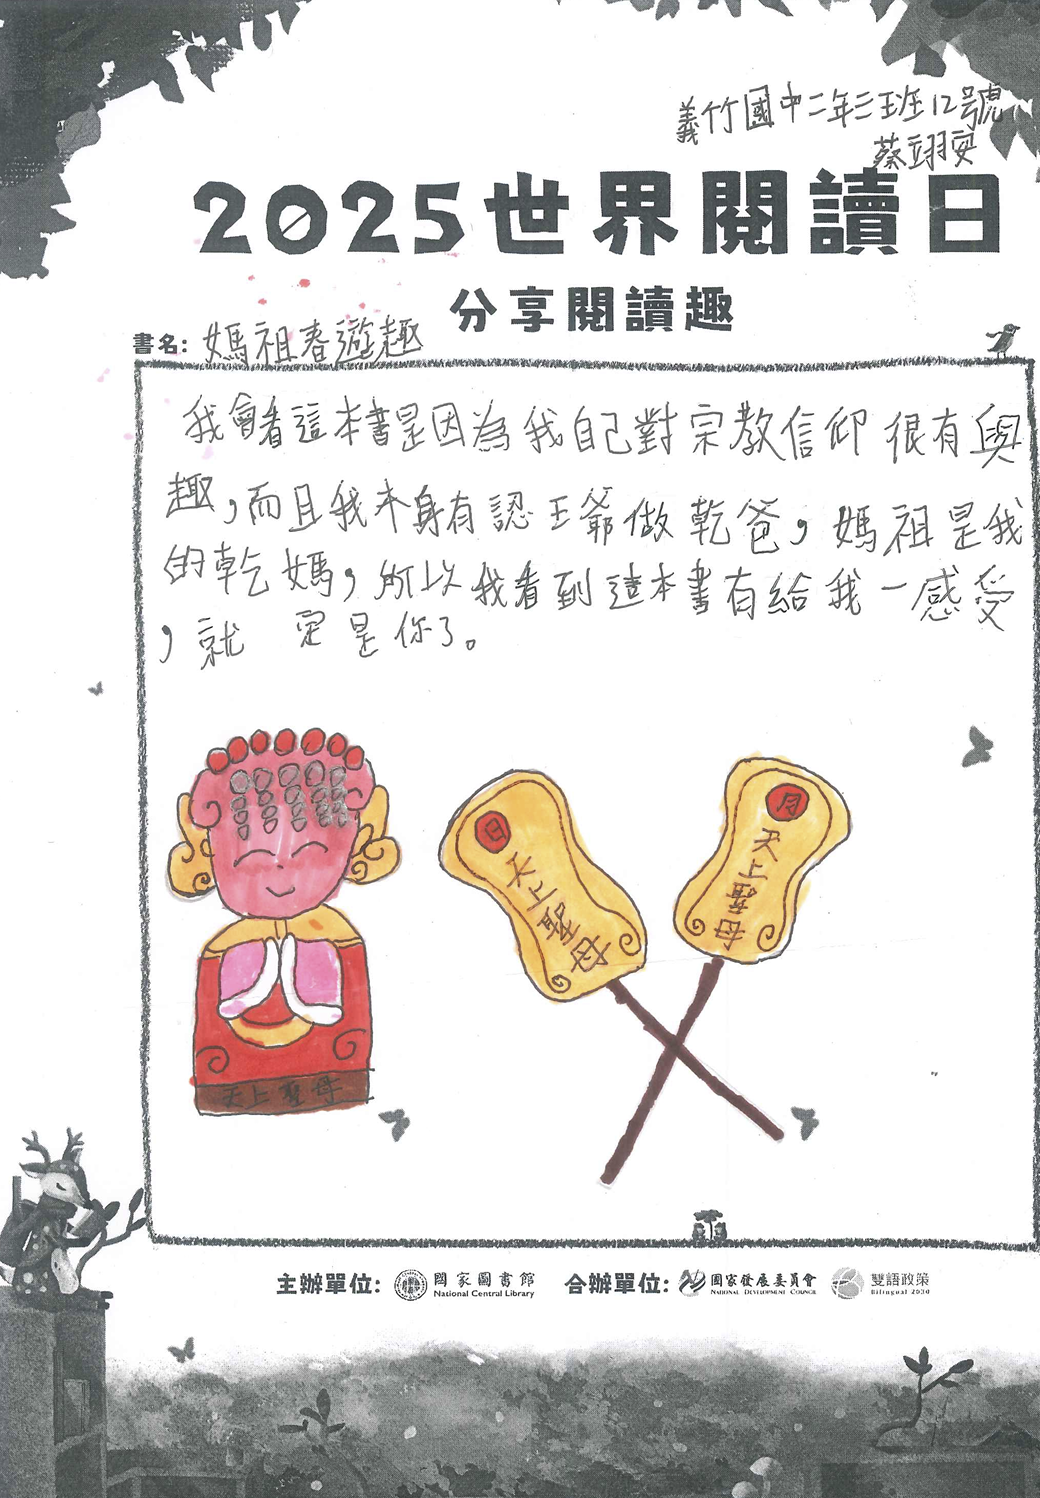 義竹國中二年三班12號
蔡翊安
2025世界閱讀日
分享閱讀趣
書名: 媽祖春遊趣
我會看這本書是因為我自己對宗教信仰很有興
趣,而且我本身有認王爺做乾爸,媽祖是我
的乾媽,所以我看到這本書有給我一感受
,就 定是你了。
日
天上聖母
月
天上聖母
天上聖母
主辦單位: 國家圖書館 National Central Library 合辦單位: 國家發展委員會 National Development Council 雙語政策 Bilingual 2030